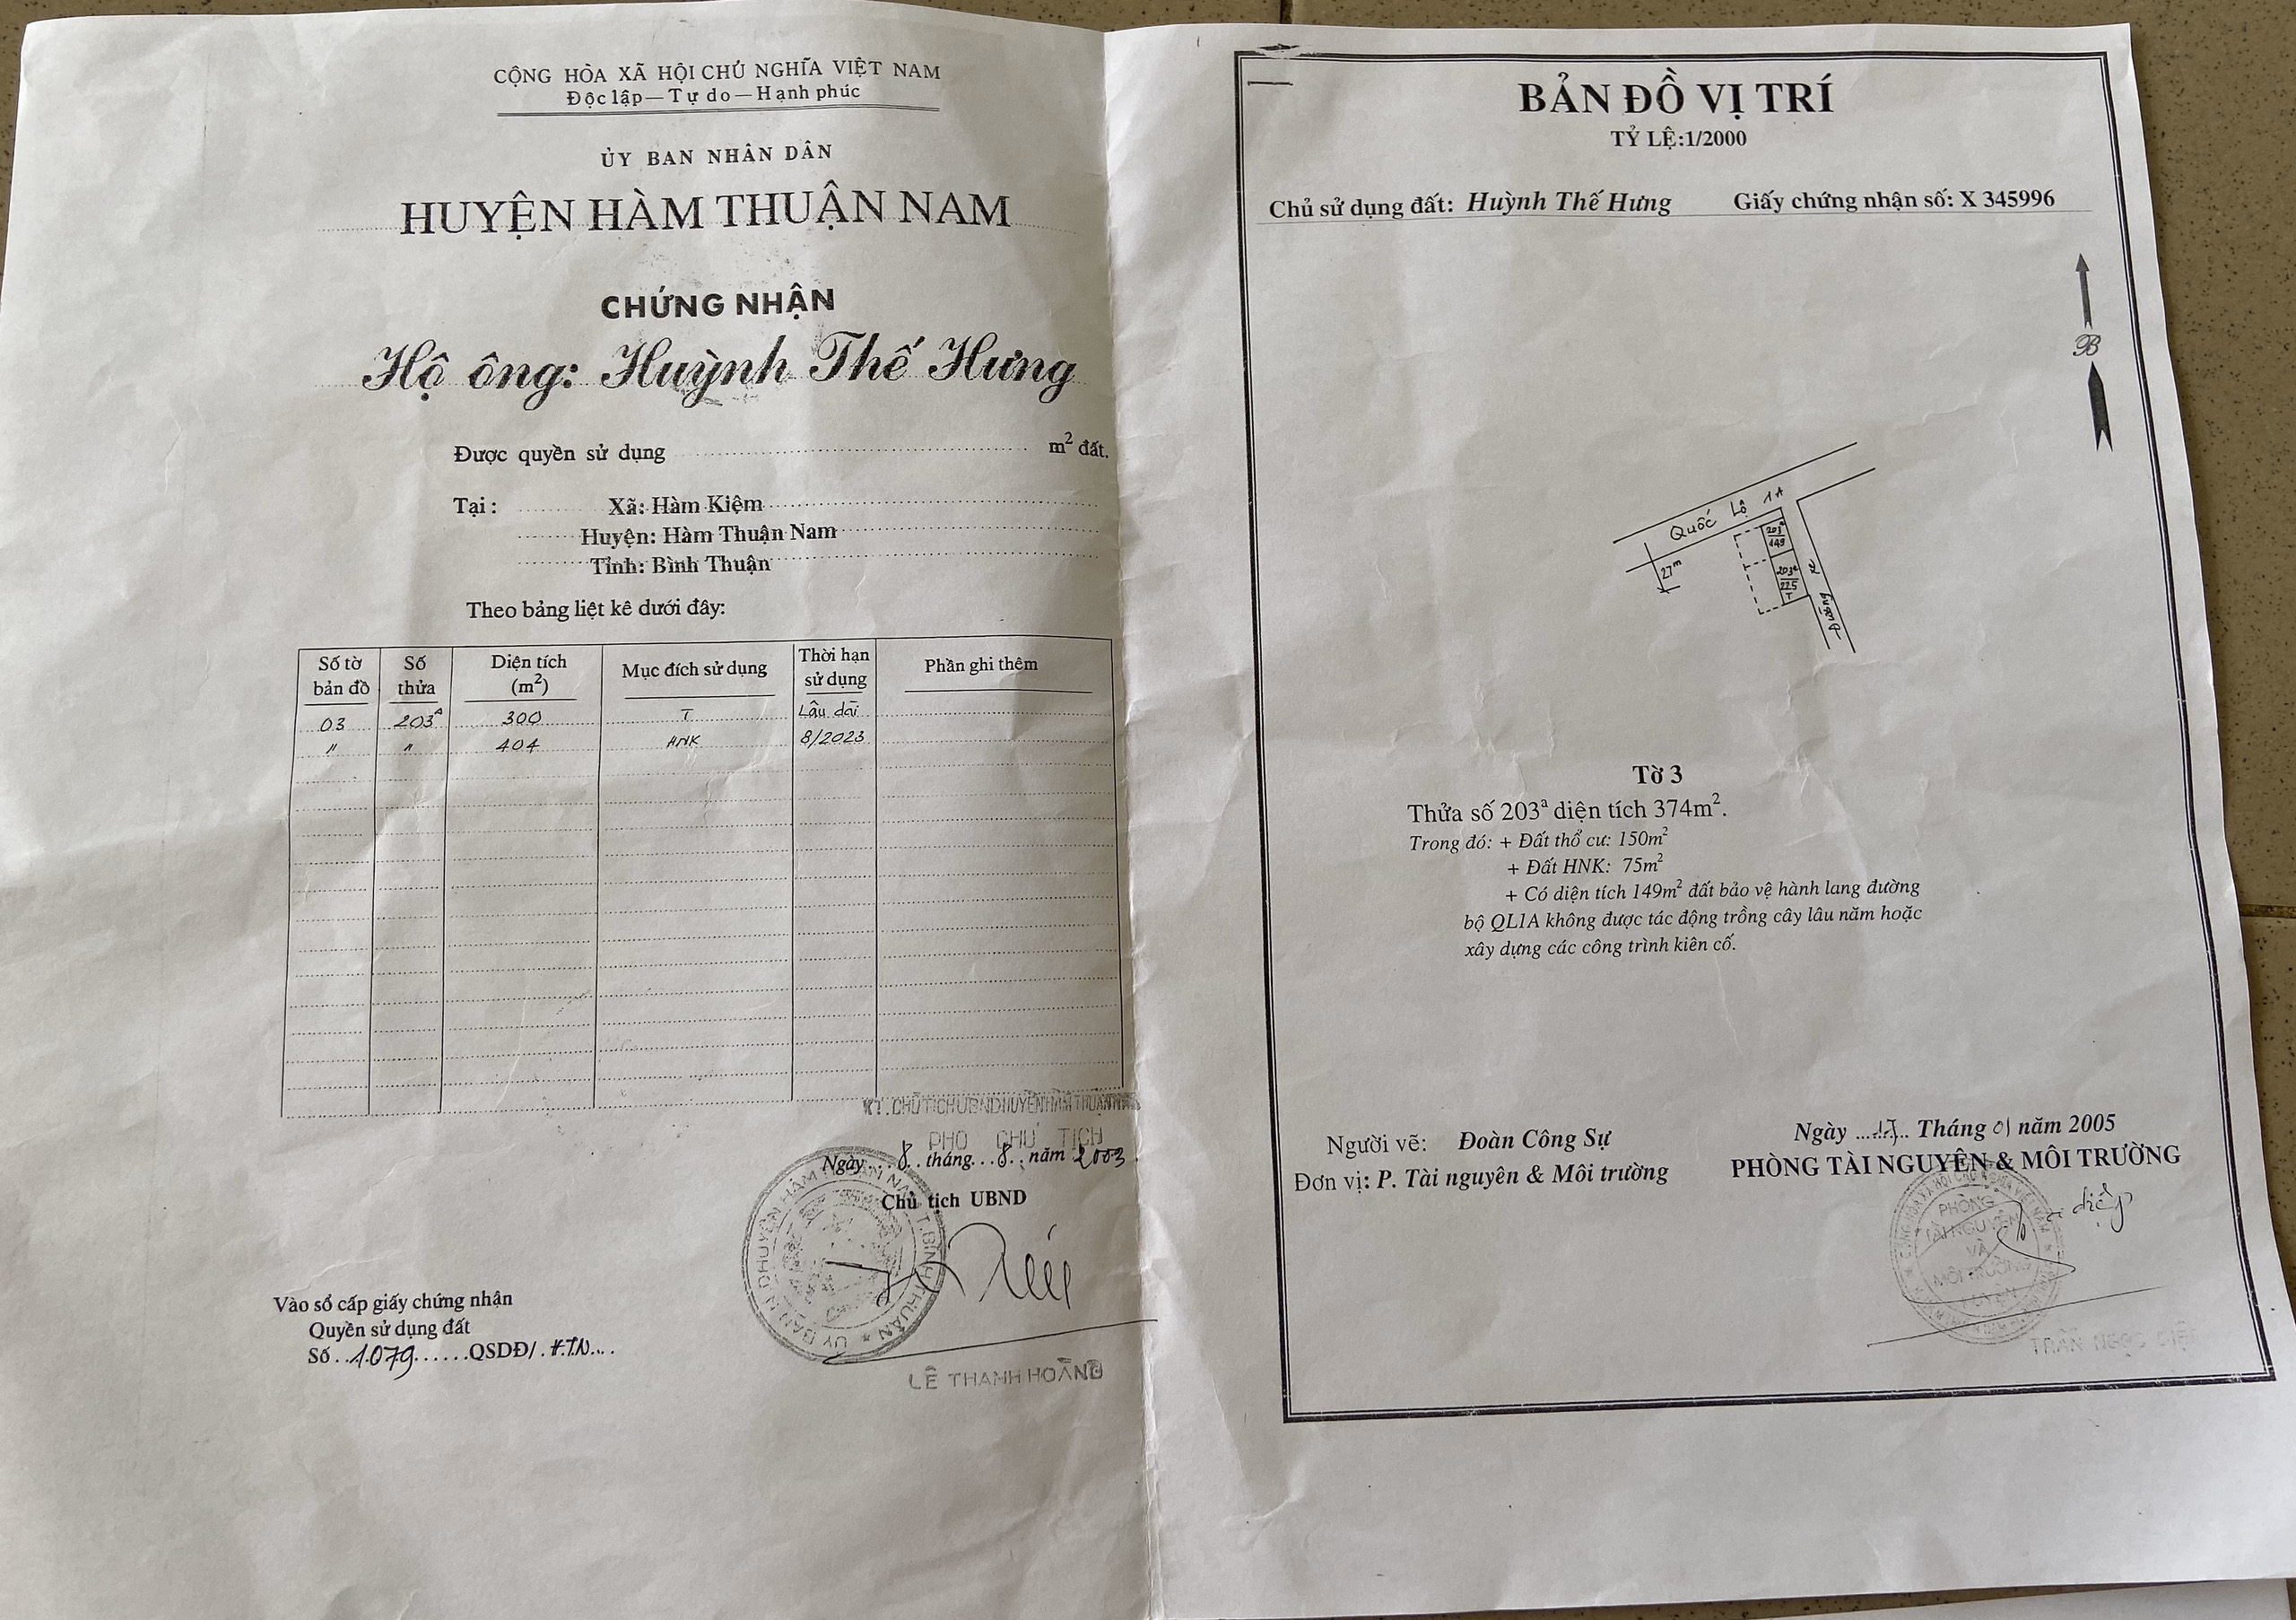 CỘNG HÒA XÃ HỘI CHỦ NGHĨA VIỆT NAM
Độc lập — Tự do — Hạnh phúc
ỦY BAN NHÂN DÂN
HUYỆN HÀM THUẬN NAM
CHỨNG NHẬN
Hộ ông: Huỳnh Thế Hưng
Được quyền sử dụng m² đất.
Tại : Xã: Hàm Kiệm
Huyện: Hàm Thuận Nam
Tỉnh: Bình Thuận
Theo bảng liệt kê dưới đây:
Số tờ bản đồ Số thửa Diện tích (m²) Mục đích sử dụng Thời hạn sử dụng Phần ghi thêm
03 203ᴬ 300 T Lâu dài
" " 404 HNK 8/2023
KT. CHỦ TỊCH UBND HUYỆN HÀM THUẬN NAM
PHÓ CHỦ TỊCH
Ngày...8..tháng...8..năm 2003
Chủ tịch UBND
LÊ THANH HOÀNG
Vào sổ cấp giấy chứng nhận
Quyền sử dụng đất
Số..1079......QSDĐ/.H.T.N...
BẢN ĐỒ VỊ TRÍ
TỶ LỆ:1/2000
Chủ sử dụng đất: Huỳnh Thế Hưng Giấy chứng nhận số: X 345996
B
Quốc Lộ 1A
27m
203ª
149
203ª
225
T
Đường
Tờ 3
Thửa số 203ª diện tích 374m².
Trong đó: + Đất thổ cư: 150m²
+ Đất HNK: 75m²
+ Có diện tích 149m² đất bảo vệ hành lang đường
bộ QL1A không được tác động trồng cây lâu năm hoặc
xây dựng các công trình kiên cố.
Người vẽ: Đoàn Công Sự
Đơn vị: P. Tài nguyên & Môi trường
Ngày ...17.. Tháng 01 năm 2005
PHÒNG TÀI NGUYÊN & MÔI TRƯỜNG
PHÒNG
TÀI NGUYÊN
VÀ
MÔI TRƯỜNG
TRẦN NGỌC DIỆP